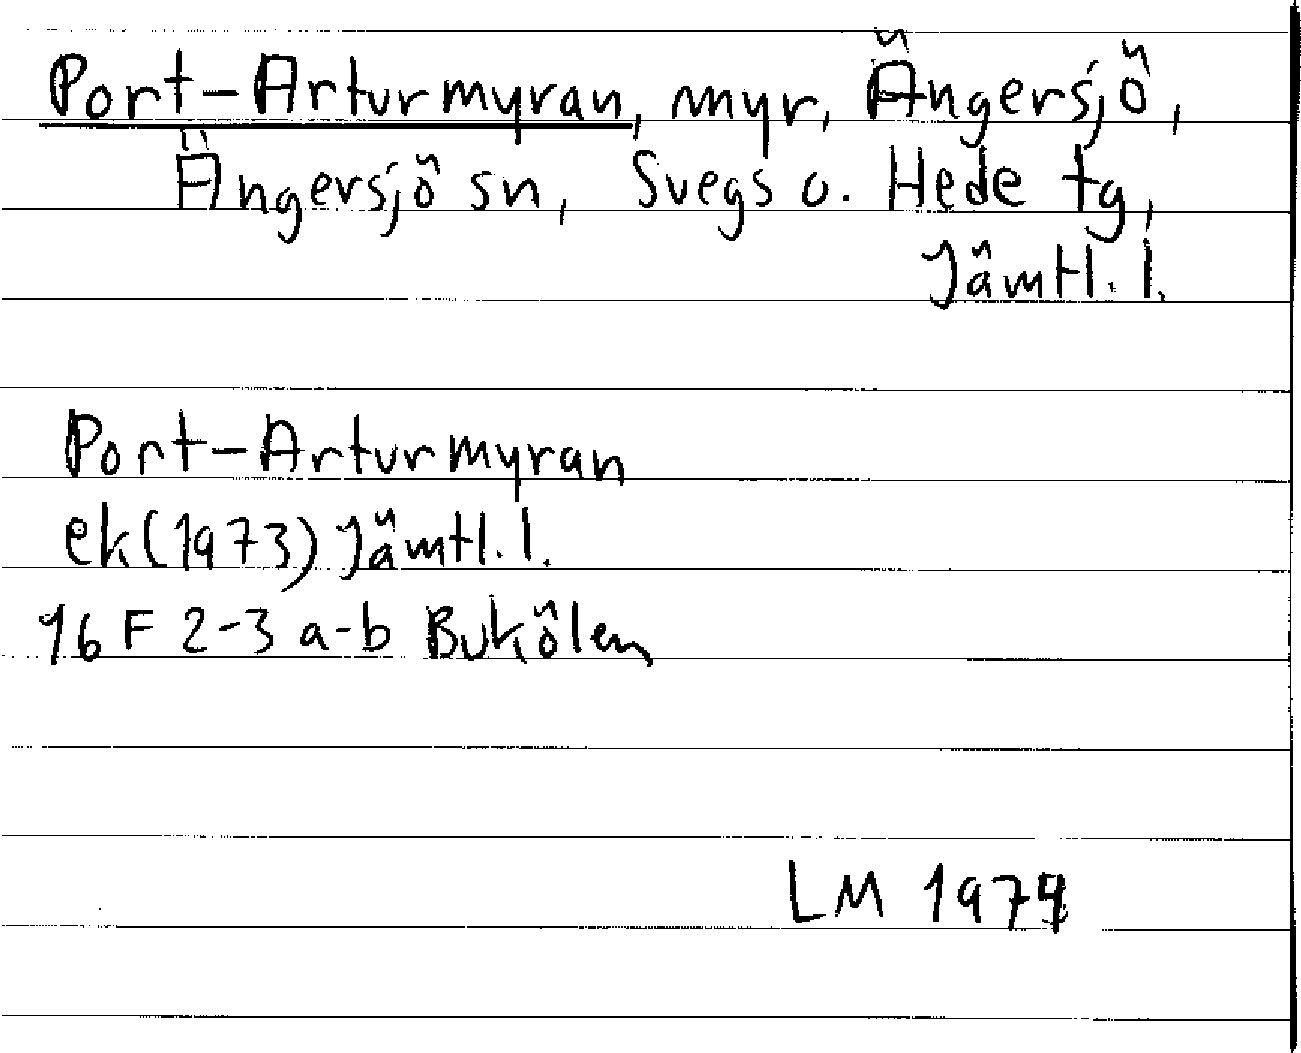 Port-Arturmyran, myr, Ängersjö,
Ängersjö sn, Svegs o. Hede tg,
Jämtl. l.
Port-Arturmyran
ek (1973) Jämtl. l.
16 F 2-3 a-b Bukölen
LM